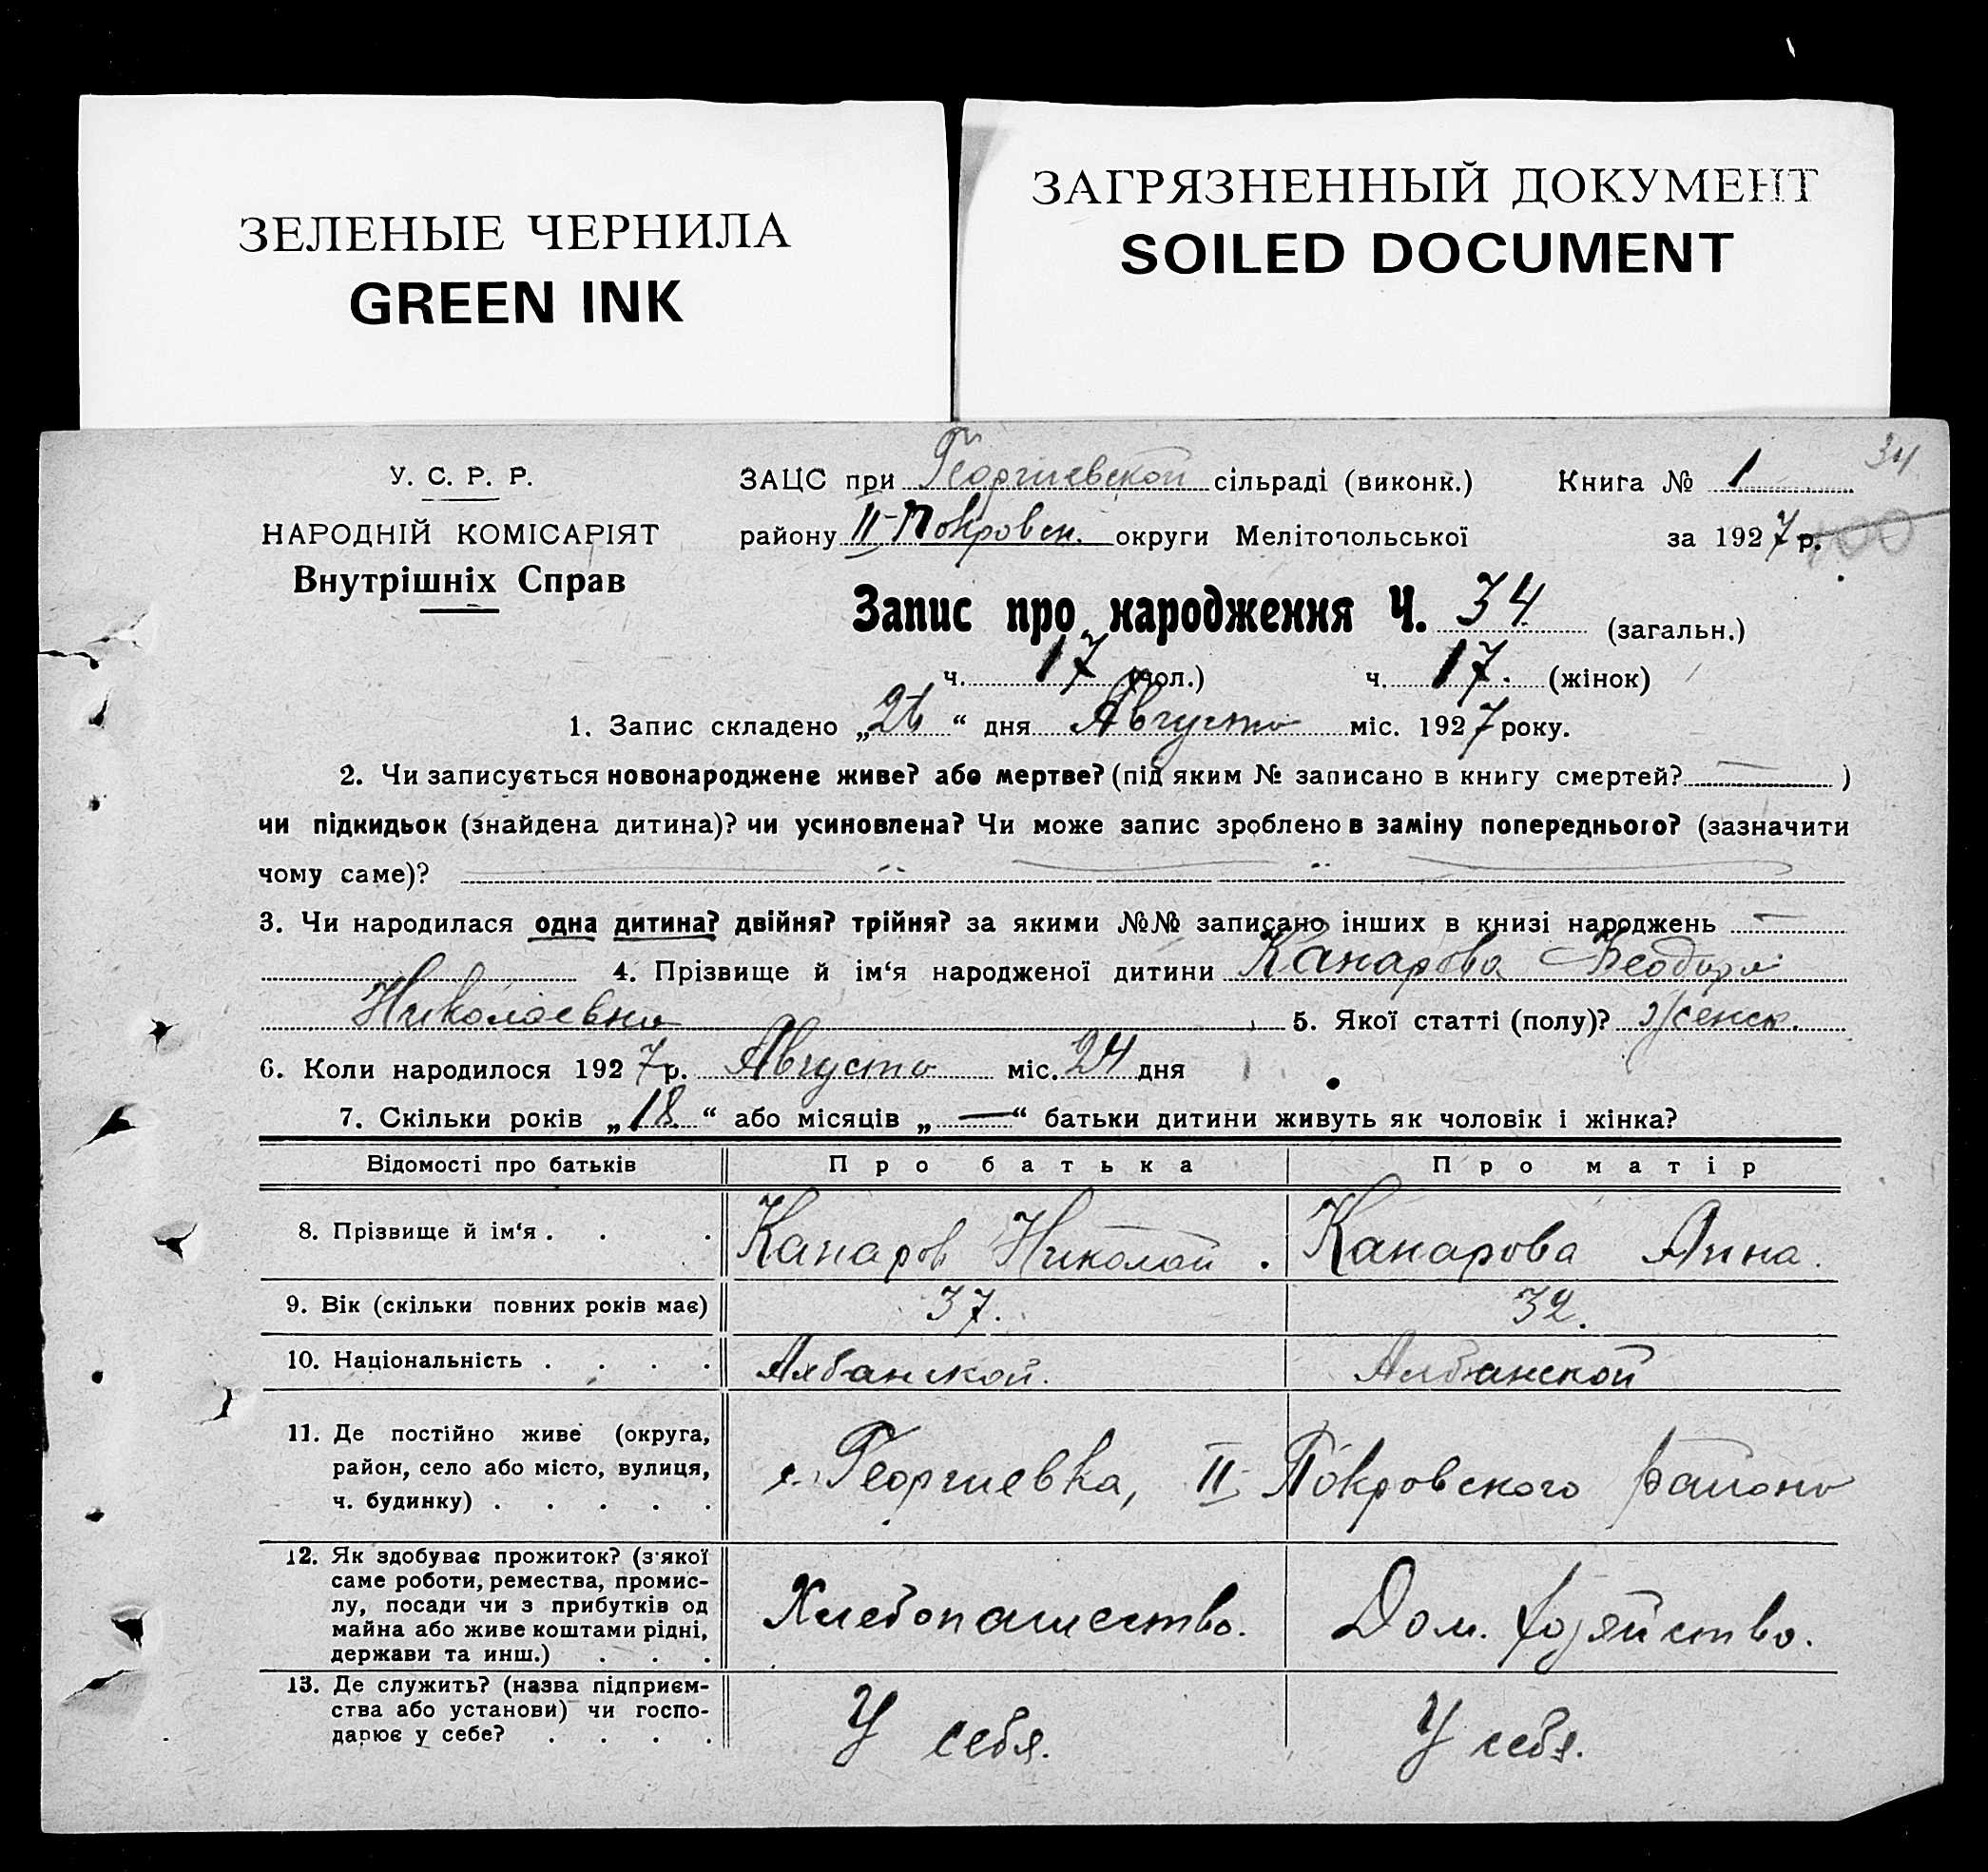 ЗЕЛЕНЫЕ ЧЕРНИЛА
GREEN INK
ЗАГРЯЗНЕННЫЙ ДОКУМЕНТ
SOILED DOCUMENT
34
У. С. Р. Р.
НАРОДНІЙ КОМІСАРІЯТ
Внутрішніх Справ
ЗАЦС при Георгиевской сільраді (виконк.) Книга № 1
району II-Покровск. округи Мелітопольської за 1927 р.
Запис про народження Ч. 34 (загальн.)
ч. 17 (чол.) ч. 17. (жінок)
1. Запис складено „26“ дня Августа міс. 1927 року.
2. Чи записується новонароджене живе? або мертве? (під яким № записано в книгу смертей? — )
чи підкидьок (знайдена дитина)? чи усиновлена? Чи може запис зроблено в заміну попереднього? (зазначити
чому саме)?
3. Чи народилася одна дитина? двійня? трійня? за якими №№ записано інших в книзі народжень —
4. Прізвище й ім‘я народженої дитини Канарова Феодора
Николаевна 5. Якої статті (полу)? Женск.
6. Коли народилося 1927 р. Августа міс. 24 дня
7. Скільки років „18“ або місяців „—“ батьки дитини живуть як чоловік і жінка?
Відомості про батьків Про батька Про матір
8. Прізвище й ім‘я . . . Канаров Николай. Канарова Анна.
9. Вік (скільки повних років має) 37. 32.
10. Національність . . . . Албанской. Албанской
11. Де постійно живе (округа,
район, село або місто, вулиця,
ч. будинку) . . . . .
с. Георгиевка, II Покровского района
12. Як здобуває прожиток? (з'якої
саме роботи, ремества, промис-
лу, посади чи з прибутків од
майна або живе коштами рідні,
держави та инш.) . . .
Хлебопашество. Дом. хозяйство.
13. Де служить? (назва підприєм-
ства або установи) чи госпо-
дарює у себе? . . . .
У себя. У себя.